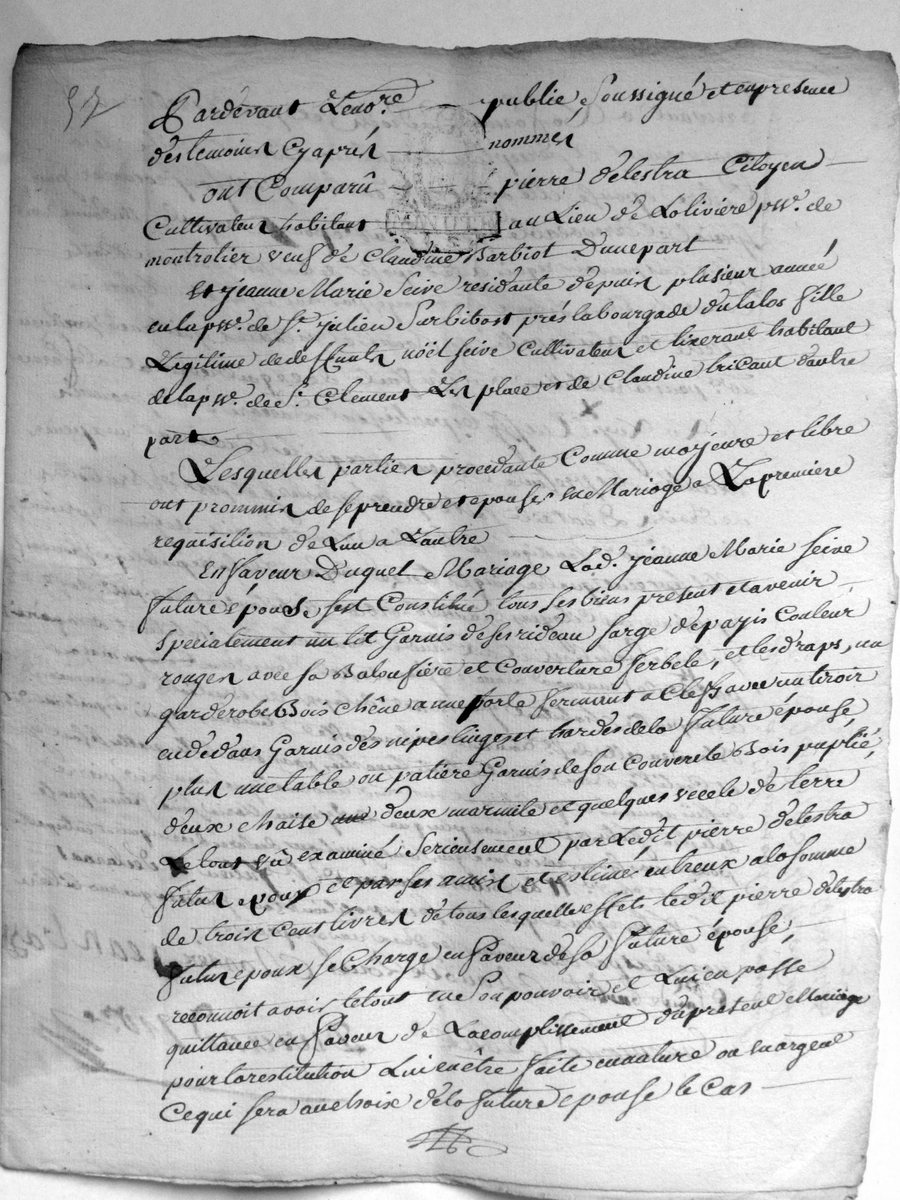 57
Pardevant Lenore. publie, soussigné et enpresence
destemoins Cyaprés nommes
ont Comparû pierre delestra Citoyen
Cultivateur habitant au Lieu de Loliviere psse. de
montrolier veuf de Claudine Barbiot Dunepart
Et jeanne Marie Seive residante depuis plusieur année
enlapsse. de St. julien Surbibost prés labourgade dutalos fille
Legitime de deffeunts nöel seive Cultivateur et tixerant habitant
delapsse. de St. Clement Les place et de Claudine bricant dautre
part
Lesquelles parties procedante Comme majeure et libre
ont prommis de seprendre et epouser en Mariage a Lapremiere
requisition de Lun a Lautre
En faveur Duquel Mariage Lad. jeanne Marie Seive
future épouse sest Constitué tous ses biens present et avenir
specialement un lit Garnis de ses rideau sarge de payis Couleur
rouges avec sa Balousiere et Couverture serbele, et les draps, un
garderobe Bois chêne a une porte fermant a Cleff avec un tiroir
endedans Garnis des nipes linges et hardes dela future épouse,
plus une table ou patiére Garnis de son Couvercle Bois puplié,
deux chaise deux marmite et quelques vecele de terre
Le tout vû examiné Serieusement par Ledit pierre delestra
futur epoux et par ses amis et estimés entreux a la somme
de trois Cent livres de tous lesquelle effets ledit pierre delestra
futur epoux se Charge en faveur de sa future épouse,
reconnoit avoir letout en son pouvoir et Luien passe
quittance en faveur de Lacomplissement duprésent Mariage
pour la restitution Lui en être faite en nature ou en argent
Ce qui sera au choix de la future epouse le Cas